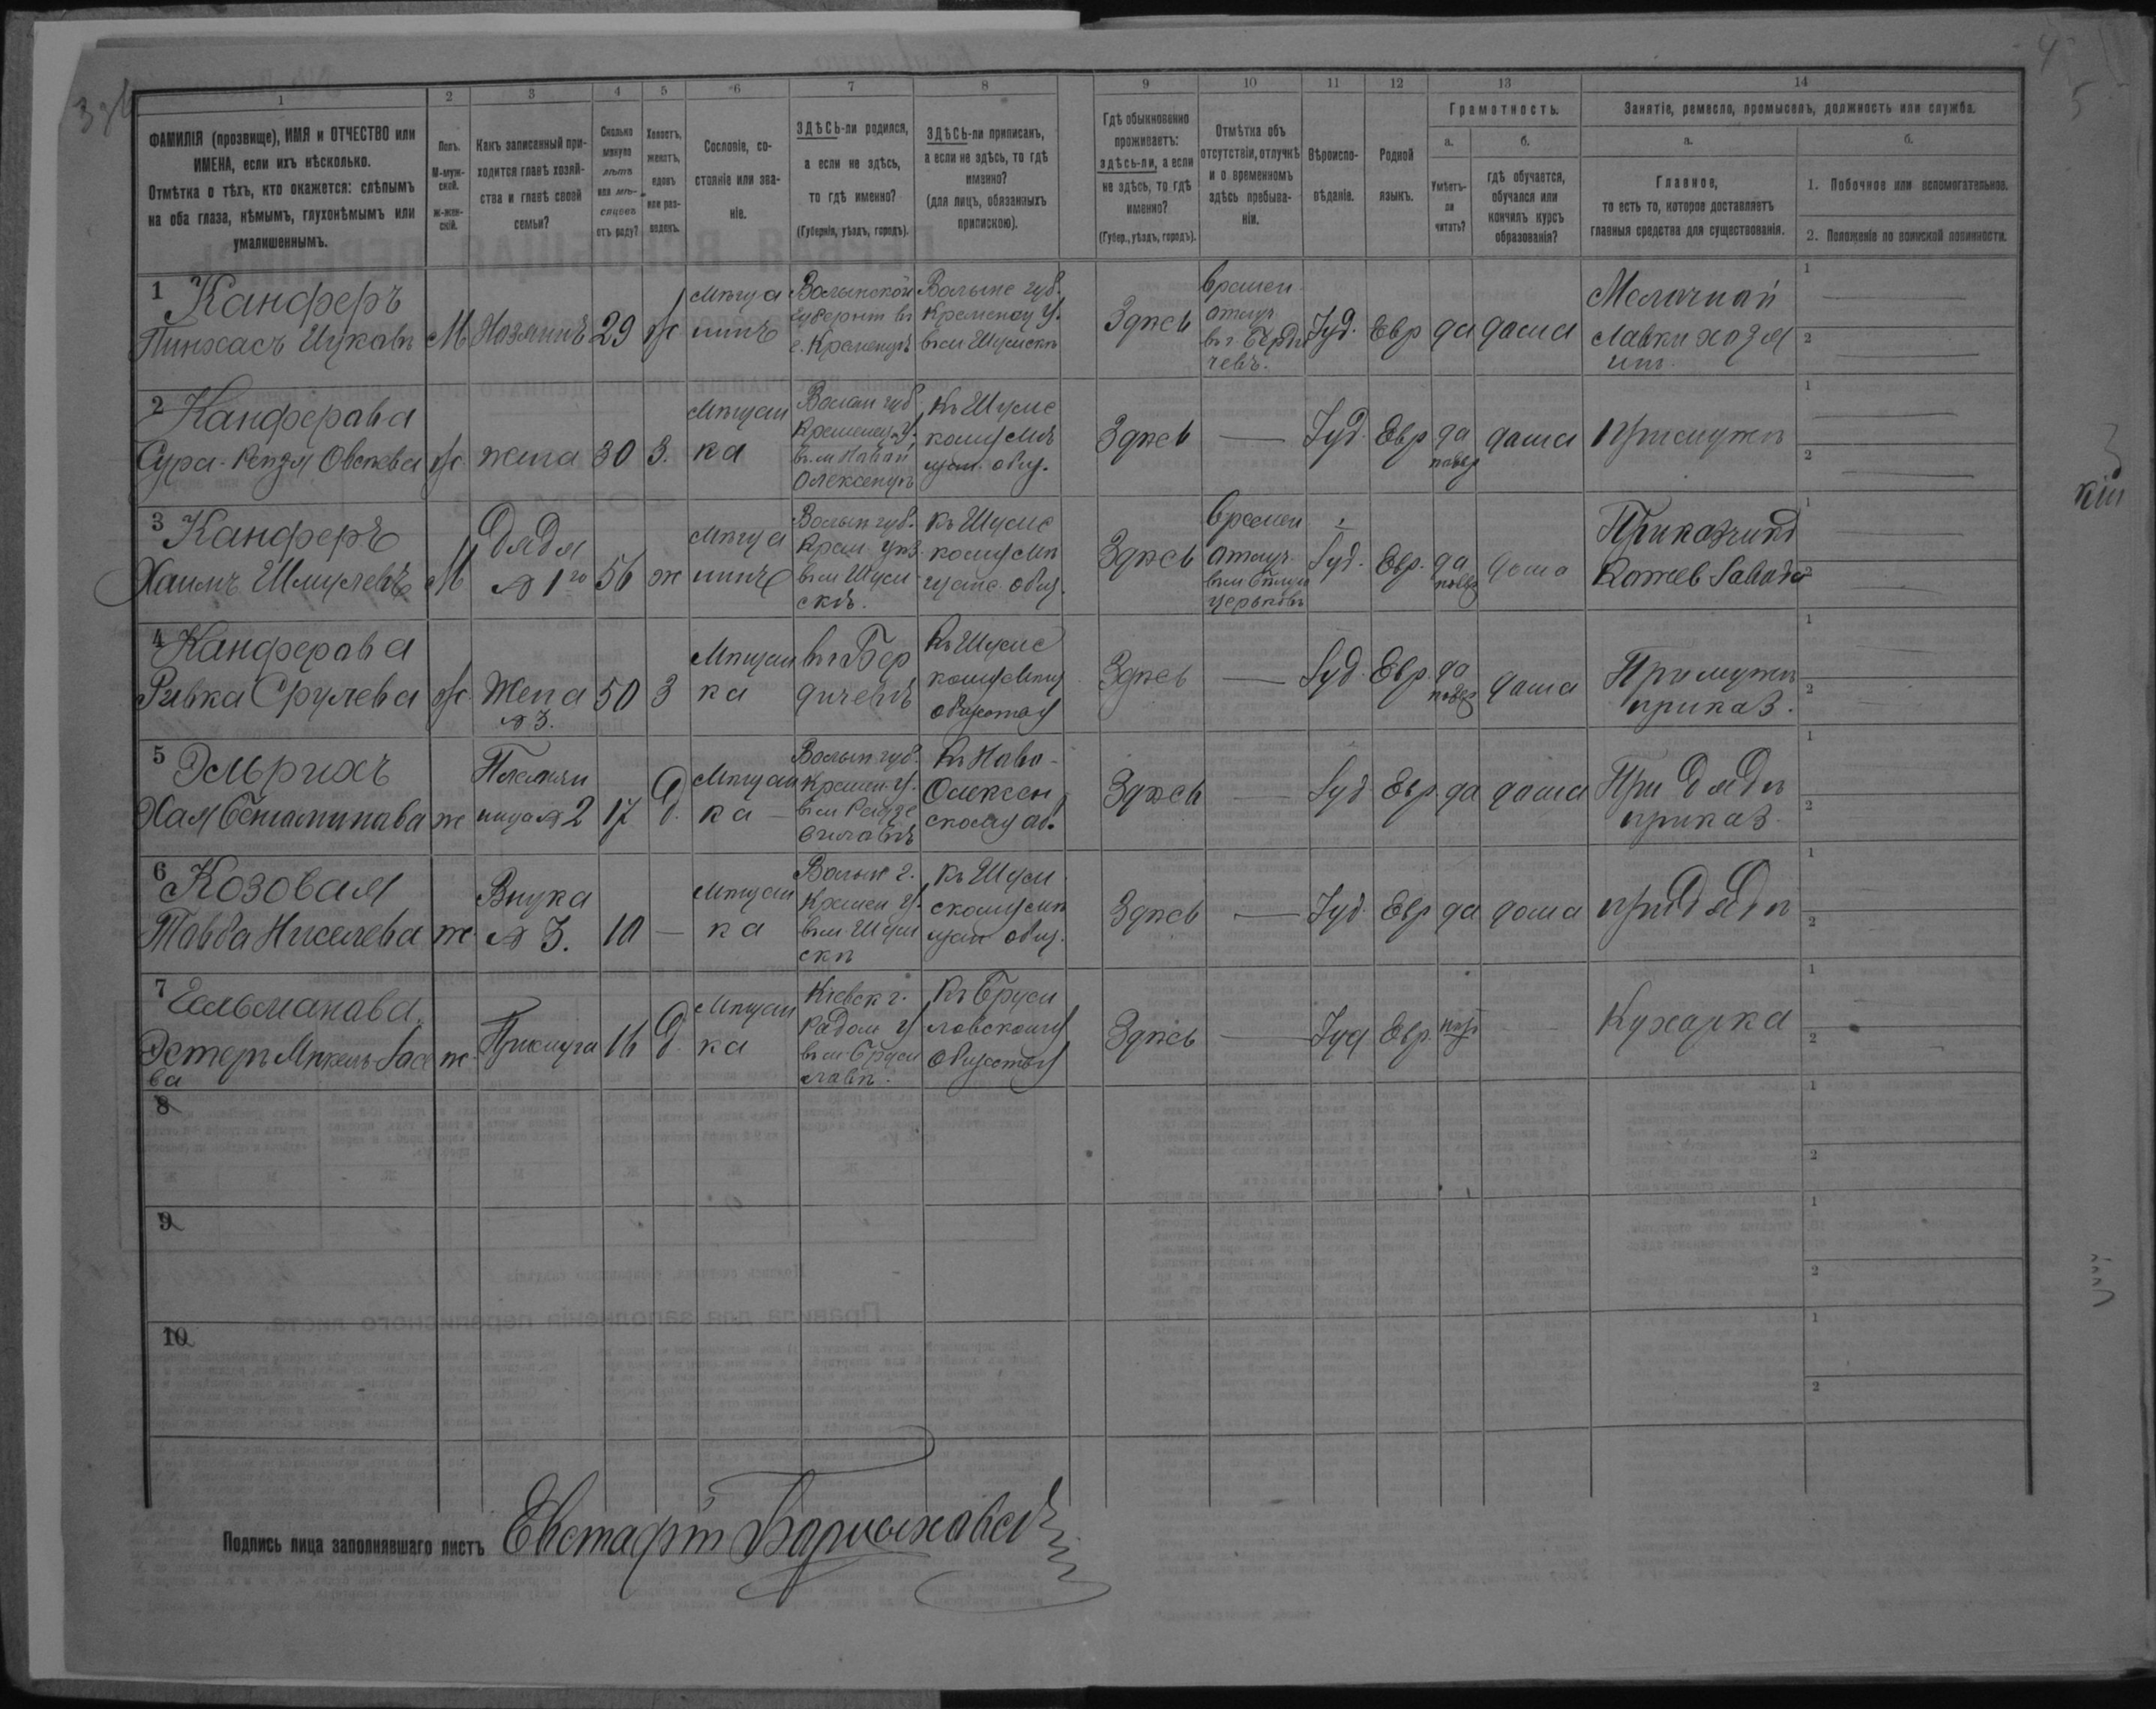 4
5
1 2 3 4 5 6 7 8 9 10 11 12 13 14
ФАМИЛІЯ (прозвище), ИМЯ и ОТЧЕСТВО или
ИМЕНА, если ихъ нѣсколько.
Отмѣтка о тѣхъ, кто окажется: слѣпымъ
на оба глаза, нѣмымъ, глухонѣмымъ или
умалишеннымъ.
Полъ.
М-муж-
ской.
ж-жен-
скій.
Какъ записанный при-
ходится главѣ хозяй-
ства и главѣ своей
семьи?
Сколько
минуло
лѣтъ
или мѣ-
сяцевъ
отъ роду?
Холостъ,
женатъ,
вдовъ
или раз-
веденъ.
Сословіе, со-
стояніе или зва-
ніе.
ЗДѢСЬ-ли родился,
а если не здѣсь,
то гдѣ именно?
(Губернія, уѣздъ, городъ).
ЗДѢСЬ-ли приписанъ,
а если не здѣсь, то гдѣ
именно?
(для лицъ, обязанныхъ
припискою).
Гдѣ обыкновенно
проживаетъ:
здѣсь-ли, а если
не здѣсь, то гдѣ
именно?
(Губер., уѣздъ, городъ).
Отмѣтка объ
отсутствіи, отлучкѣ
и о временномъ
здѣсь пребыва-
ніи.
Вѣроиспо-
вѣданіе.
Родной
языкъ.
Грамотность.
а.
Умѣетъ-
ли
читать?
б.
гдѣ обучается,
обучался или
кончилъ курсъ
образованія?
Занятіе, ремесло, промыселъ, должность или служба.
а.
Главное,
то есть то, которое доставляетъ
главныя средства для существованія.
б.
1. Побочное или вспомогательное.
2. Положеніе по воинской повинности.
1 Канферъ
Пинхасъ Ицковъ
М
Хозяинъ
29
ж
мѣща
нинъ
Волынской
губерніи въ
г. Кременцѣ
Волынс губ.
Кременец у.
въ м Шумскъ
Здѣсь
времен
отлуч
въ г. Берди
чевъ.
Іуд.
Евр
да
дома
Мелочной
лавки хозя
ин.
1
2
2 Канферова
Сура-Рейзя Овсѣева
ж
жена
30
З.
Мѣщан
ка
Волын губ
Кременец. у.
въ м Новой
Олексенцѣ
Къ Шумс
кому Мѣ
щан. общ.
Здѣсь
Іуд.
Евр
да
дома
При мужѣ
1
2
3 Канферъ
Хаимъ Шмулевъ
М
Дядя
№ 1го
56
ж
мѣща
нинъ
Волын губ.
Крем. уѣз.
въ м Шум
скѣ.
Къ Шумс
кому Мѣ
щанс. общ.
Здѣсь
времен
отлуч.
въ м Бѣлую
церьковъ
Іуд.
Евр.
да
дома
Приказчикъ
Кожев завода
1
2
4 Канферова
Ривка Срулева
ж
Жена
№ 3.
50
З
Мѣщан
ка
въ г Бер
дичевѣ
Къ Шумс
кому Мѣщ
обществу
Здѣсь
Іуд.
Евр.
да
дома
При мужѣ
приказ.
1
2
5 Эльрихъ
Хая Беньяминова
ж
Племян
ница № 2
17
Д.
Мѣщан
ка
Волын губ.
Кремен. у.
Къ Ново-
Олексен
скому об.
Здѣсь
Іуд
Евр
да
дома
При дядѣ
приказ.
1
2
6 Козовая
Тавба Нисилева
ж
Внука
№ 3.
10
Мѣщан
ка
Волын г.
Кремен у.
въ м. Шум
скѣ
Къ Шум
скому мѣ
щан общ.
Здѣсь
Іуд.
Евр
да
дома
при дядѣ
1
2
7 Гельманова
Эстеръ
ва
ж
Прислуга
16
Д.
Мѣщан
ка
Кіевск г.
Радом у
въ м Бруси
ловѣ.
Къ Бруси
ловскому
обществу
Здѣсь
Іуд
Евр.
Кухарка
1
2
8
1
2
9
1
2
10
1
2
Подпись лица заполнявшаго листъ